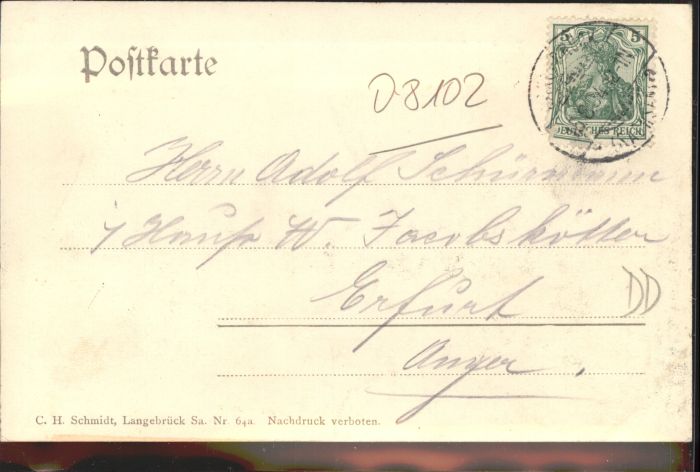 Postkarte
5
DEUTSCHES REICH
D-8102
Herrn Adolf Schürmann
i/ Haus W. Jacobskötter
Erfurt
DD
Anger.
C. H. Schmidt, Langebrück Sa. Nr. 64a. Nachdruck verboten.